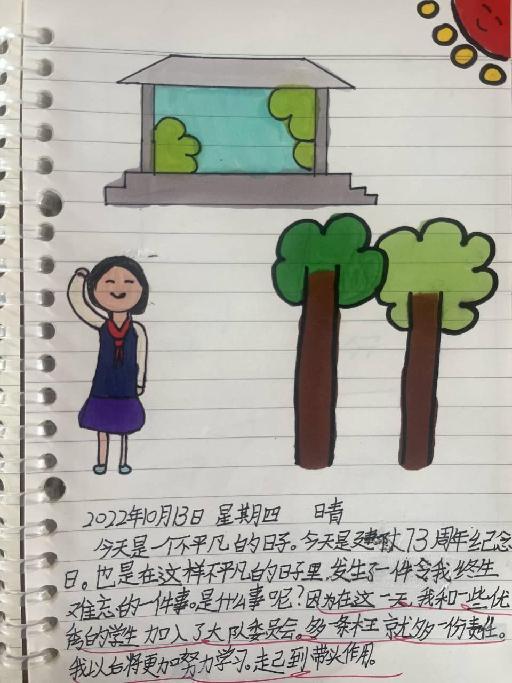 2022年10月13日 星期四 晴
今天是一个不平凡的日子。今天是建队73周年纪念
日。也是在这样不平凡的日子里,发生了一件令我终生
难忘的一件事。是什么事呢?因为在这一天,我和一些优
秀的学生加入了大队委员会。多一条杠就多一份责任。
我以后将更加努力学习。走己到带头作用。